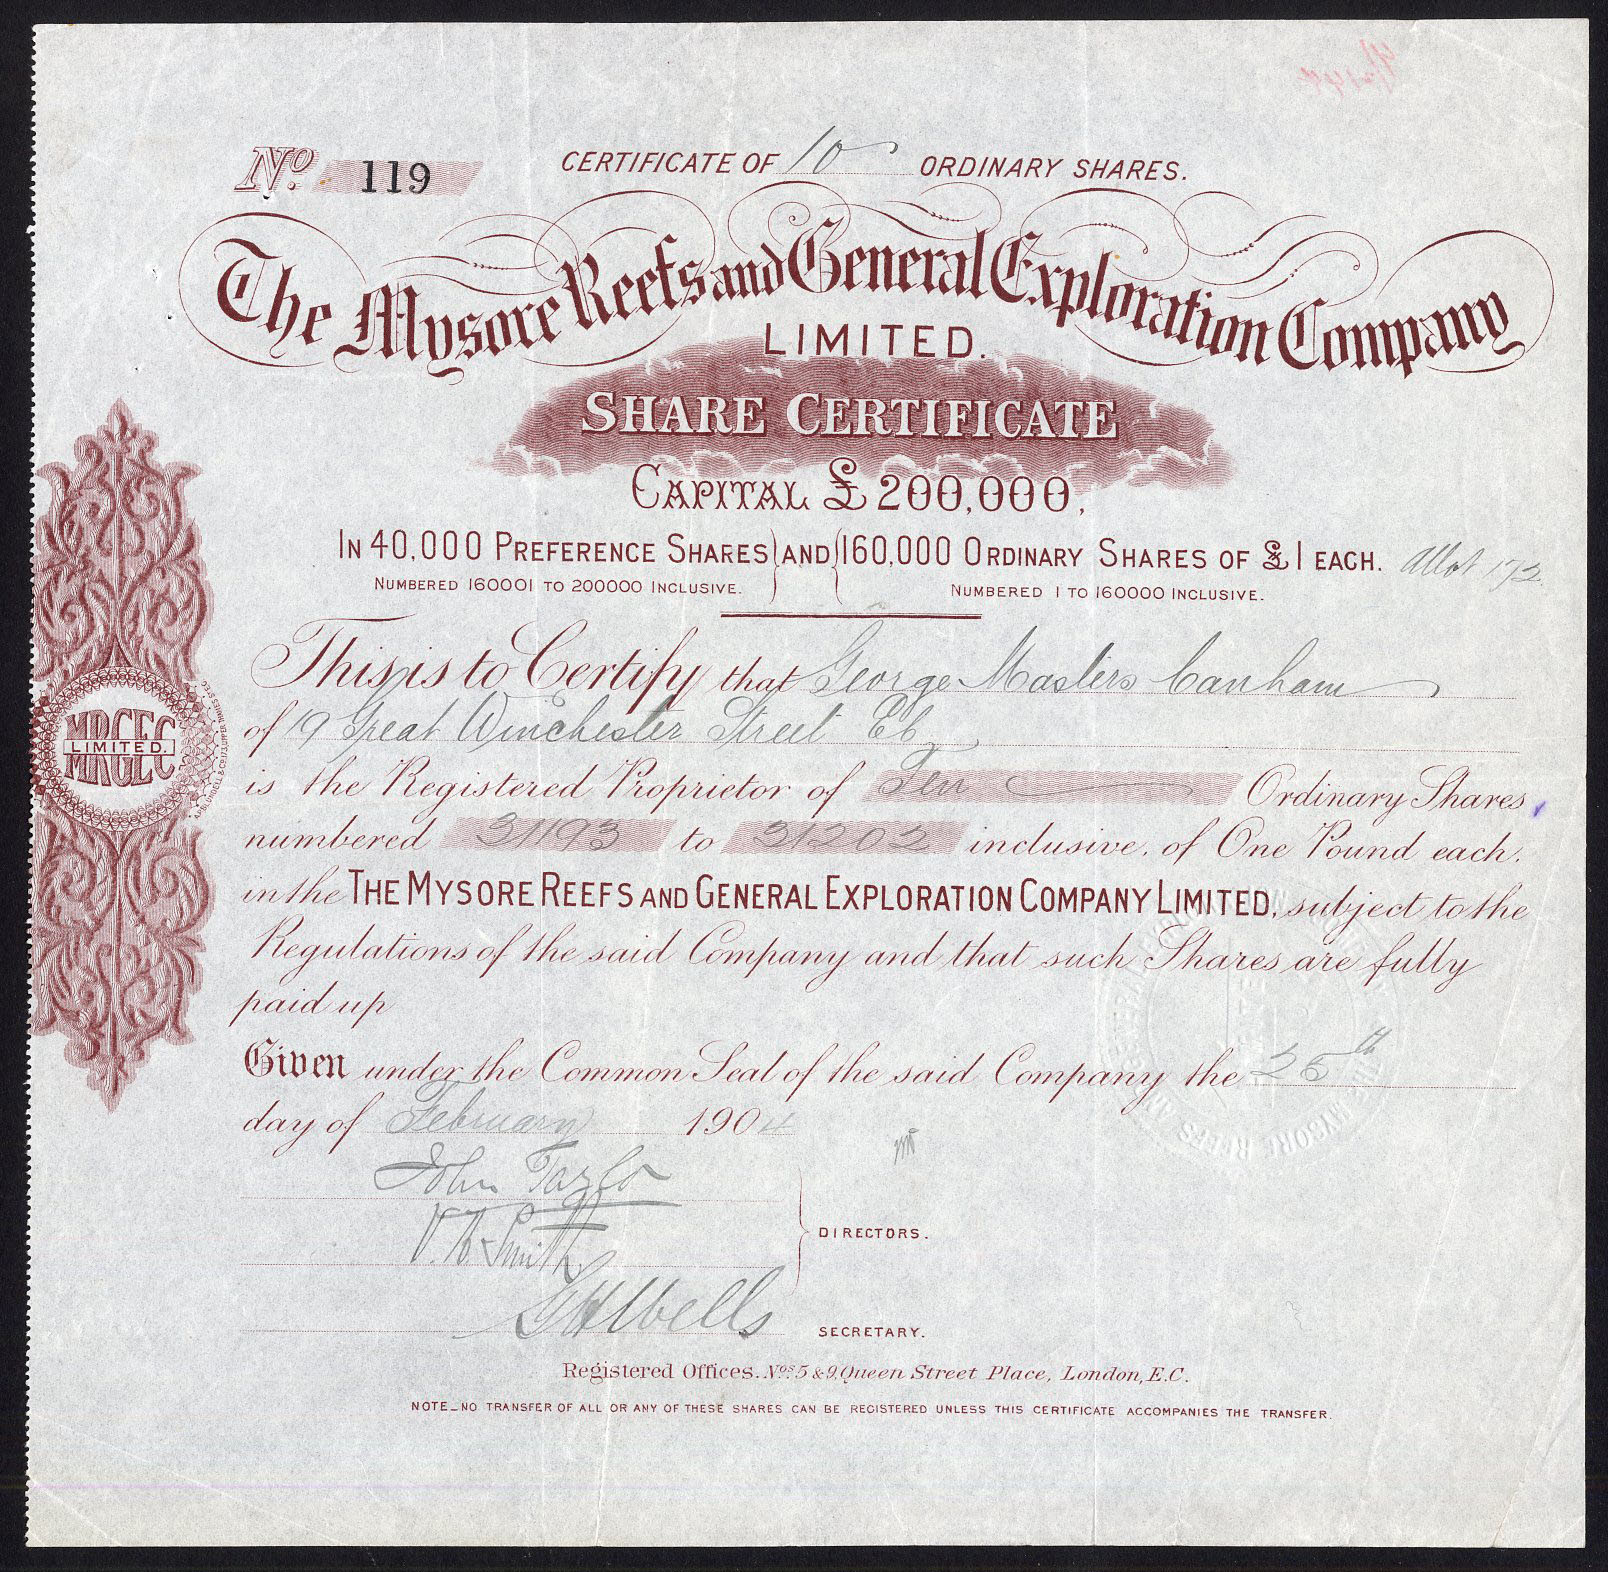 No. 119
CERTIFICATE OF 10 ORDINARY SHARES.
The Mysore Reefs and General Exploration Company
LIMITED.
SHARE CERTIFICATE
CAPITAL £200,000,
IN 40,000 PREFERENCE SHARES AND 160,000 ORDINARY SHARES OF £1 EACH. Allot 172
NUMBERED 160001 TO 200000 INCLUSIVE. NUMBERED 1 TO 160000 INCLUSIVE.
This is to Certify that George Masters Canham
of 19 Great Winchester Street EC
is the Registered Proprietor of Ten Ordinary Shares
numbered 31193 to 31202 inclusive, of One Pound each,
in the THE MYSORE REEFS AND GENERAL EXPLORATION COMPANY LIMITED, subject to the
Regulations of the said Company and that such Shares are fully
paid up
Given under the Common Seal of the said Company the 25th
day of February 1904
John Taylor
V. W. Smith
DIRECTORS.
G H Wells
SECRETARY.
Registered Offices. Nos. 5 & 9, Queen Street Place, London, E.C.
NOTE_NO TRANSFER OF ALL OR ANY OF THESE SHARES CAN BE REGISTERED UNLESS THIS CERTIFICATE ACCOMPANIES THE TRANSFER.
MRGEC
LIMITED.
MRGEC